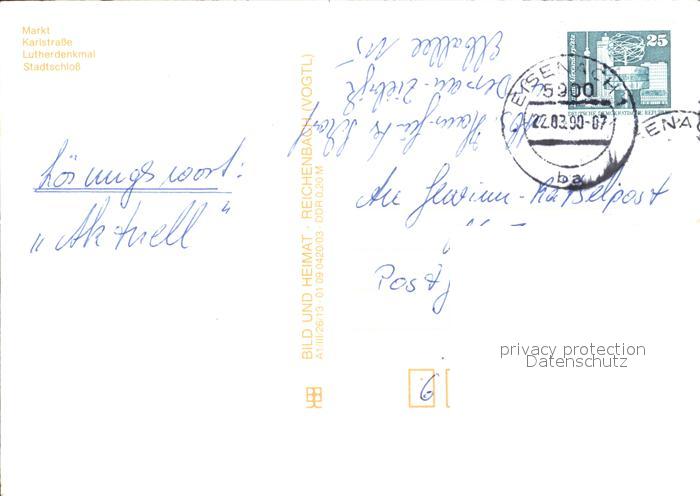 Markt
Karlstraße
Lutherdenkmal
Stadtschloß
Lösungswort:
„Aktuell"
BILD UND HEIMAT · REICHENBACH (VOGTL)
A1/III/26/13 · 01 09 0420/03 · DDR 0,20 M
Elballee 115
Dessau-Ziebigk
25
DEUTSCHE DEMOKRATISCHE REPUBLIK
EISENACH 1
5900
22.03.90-07
ba
ENA
An Gewinn-Rätselpost
Postf
6
privacy protection
Datenschutz